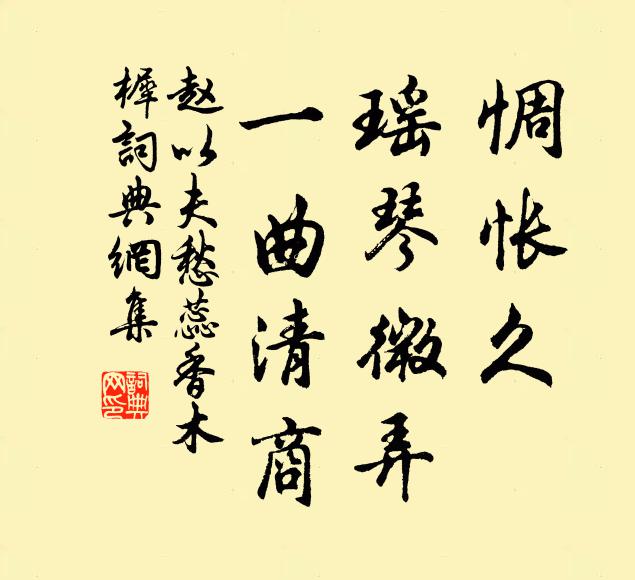 惆怅久
瑶琴微弄
一曲清商
赵以夫愁蕊香木
樨詞典網集
詞典
网印